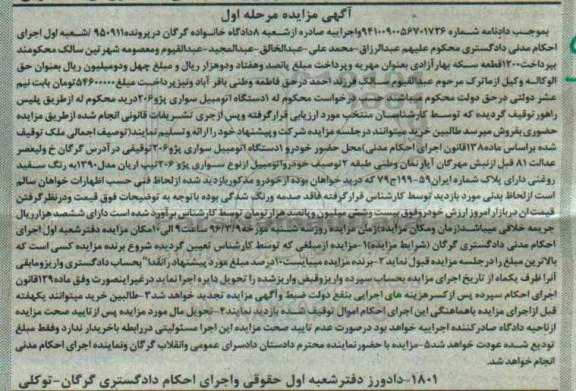 آگهی مزایده مرحله اول
بموجب دادنامه شماره ۹۴۱۰۰۹۰۰۵۶۷۰۱۷۳۶ واجراییه صادره ازشعبه ۸دادگاه خانواده گرگان درپرونده۹۵۰۹۱۱ /شعبه اول اجرای
احکام مدنی دادگستری محکوم علیهم عبدالرزاق-محمد علی-عبدالخالق-عبدالمجید-عبدالقیوم ومعصومه شهرتین سالک محکومند
بپرداخت۱۲۰۰قطعه سکه بهارآزادی بعنوان مهریه وپرداخت مبلغ پانصد وهفتاد ودوهزار ریال و مبلغ چهل ودومیلیون ریال بعنوان حق
الوکاله وکیل ازماترک مرحوم عبدالقیوم سالک فرزند احمد درحق فاطمه وطنی باقر آباد ونیزپرداخت مبلغ۵۴۶۰۰۰۰۰تومان بابت نیم
عشر دولتی درحق دولت محکوم میباشند حسب درخواست محکوم له ۱دستگاه اتومبیل سواری پژو۲۰۶درید محکوم له ازطریق پلیس
راهور توقیف گردیده که توسط کارشناسان منتخب مورد ارزیابی قرارگرفته وپس ازجری تشریفات قانونی انجام شده ازطریق مزایده
حضوری بفروش میرسد طالبین خرید میتوانند درجلسه مزایده شرکت وپیشنهاد خود را ارائه و تسلیم نمایند(توصیف اجمالی ملک توقیف
شده براساس ماده۱۳۸قانون اجرای احکام مدنی)محل حضور خودرو ۱دستگاه اتومبیل سواری پژو۲۰۶توقیفی درآدرس گرگان خ ولیعصر
عدالت ۸۱ قبل ازنبش مهرگان آپارتمان وطنی طبقه ۲توصیف خودرواتومبیل ازنوع سواری پژو ۲۰۶تیپ اریان مدل۱۳۹۰به رنگ سفید
روغنی دارای پلاک شماره ایران۵۹-۱۹۹ج۷۹ که درید خواهان بوده ازخودرو مذکوربازدید شده ازلحاظ فنی حسب اظهارات خواهان سالم
است ازلحاظ بدنی مورد بازدید توسط کارشناس قرارگرفته فاقد صدمه ورنگ شدگی بوده باتوجه به توضیحات فوق قیمت ودرنظرگرفتن
قیمت آن دربازار امروز ارزش خودروفوق بیست وشش میلیون وپانصد هزارتومان توسط کارشناس برآورد شده است دارای ششصد هزارریال
جریمه خلافی میباشد(زمان ومکان مزایده)زمان مزایده روزسه شنبه مورخه۹۶/۳/۹ ساعت۹ الی۱۰مکان مزایده دفترشعبه اول اجرای
احکام مدنی دادگستری گرگان (شرایط مزایده)۱-مزایده ازمبلغی که توسط کارشناس تعیین گردیده شروع برنده مزایده کسی است که
بالاترین مبلغ را درجلسه مزایده قبول نماید۲-برنده مزایده میبایست۱۰درصد مبلغ مورد پیشنهاد رانقدا"بحساب دادگستری واریزومابقی
آنرا ظرف یکماه از تاریخ اجرای مزایده بحساب سپرده واریزوقبض واریزشده را تحویل دایره اجرا نماید درغیراینصورت وفق ماده۱۲۹قانون
اجرای احکام سپرده پس ازکسرهزینه های اجرایی بنفع دولت ضبط وآگهی مزایده تجدید خواهد شد۳-طالبین خرید میتوانند یکهفته
قبل ازاجرای مزایده باهماهنگی این اجرای احکام اموال توقیف شده بازدید نمایند۴-تحویل مال مورد مزایده پس ازتایید صحت مزایده
ازناحیه دادگاه صادرکننده اجراییه خواهد بود درصورت عدم تایید صحت مزایده این اجرا مسئولیتی دررابطه باخریدار ندارد وفقط مبلغ
تودیع شده عودت خواهد شد۵-مزایده با حضورنماینده محترم دادستان دادسرای عمومی وانقلاب گرگان ونماینده اجرای احکام مدنی
انجام خواهد شد.
۱۸۰۱-دادورز دفترشعبه اول حقوقی واجرای احکام دادگستری گرگان-توکلی